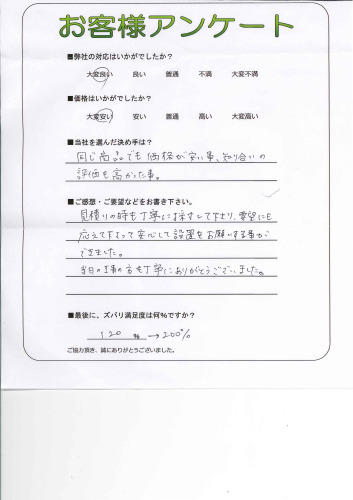 お客様アンケート
■弊社の対応はいかがでしたか？
大変良い 良い 普通 不満 大変不満
■価格はいかがでしたか？
大変安い 安い 普通 高い 大変高い
■当社を選んだ決め手は？
同じ商品でも価格が安い事、知り合いの
評価も高かった事。
■ご感想・ご要望などをお書き下さい。
見積りの時も丁寧に して下さり、要望にも
応えて下さって安心して設置をお願いする事が
できました。
当日の工事の方も丁寧にありがとうございました。
■最後に、ズバリ満足度は何%ですか？
120 % → 200%
ご協力頂き、誠にありがとうございました。